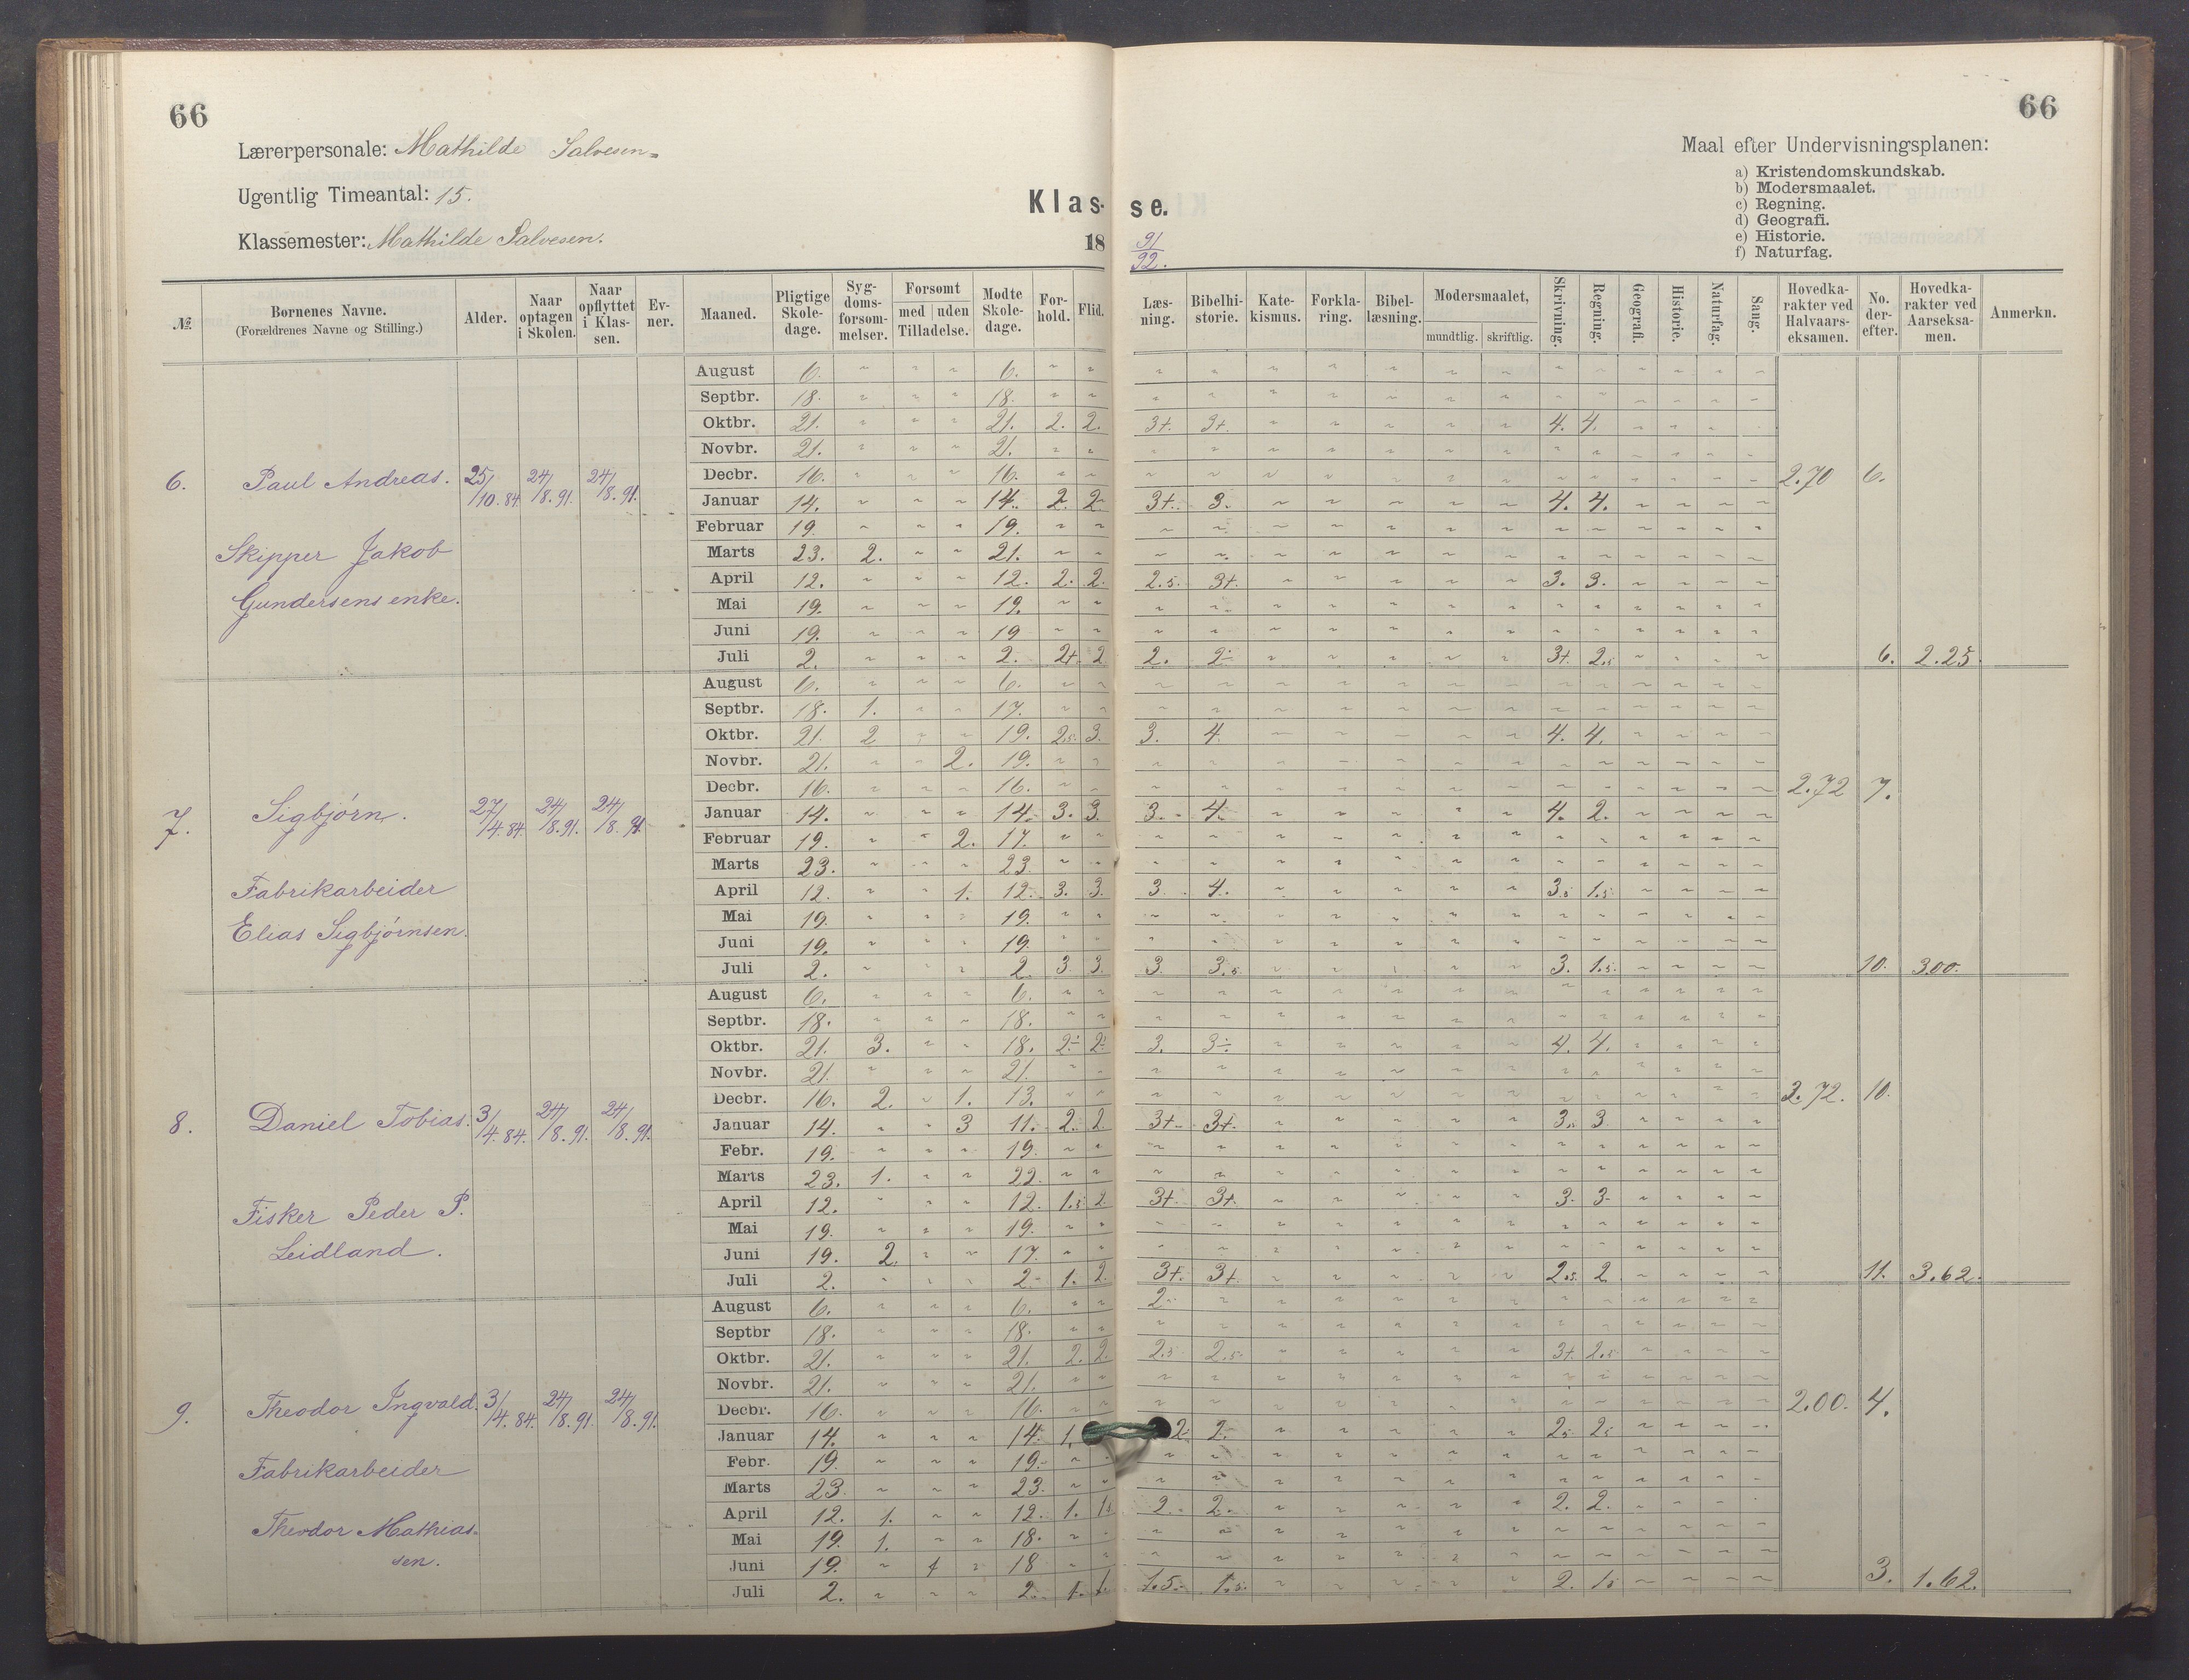 66
66
Lærerpersonale: Mathilde Salvesen
Ugentlig Timeantal: 15.
Klassemester: Mathilde Salvesen.
Klas- se.
18 91/92.
Maal efter Undervisningsplanen:
a) Kristendomskundskab.
b) Modersmaalet.
c) Regning.
d) Geografi.
e) Historie.
f) Naturfag.
№ Børnenes Navne. (Forældrenes Navne og Stilling.) Alder. Naar optagen i Skolen. Naar opflyttet i Klassen. Evner. Maaned. Pligtige Skoledage. Sygdomsforsømmelser. Forsømt med uden Tilladelse. Mødte Skoledage. Forhold. Flid. Læsning. Bibelhistorie. Katekismus. Forklaring. Bibellæsning. Modersmaalet, mundtlig. skriftlig. Skrivning. Regning. Geografi. Historie. Naturfag. Sang. Hovedkarakter ved Halvaarseksamen. No. derefter. Hovedkarakter ved Aarseksamen. Anmerkn.
6. Paul Andreas. 25/10.84 24/8.91. 24/8.91.
Skipper Jakob
Gundersens enke.
August 6. 6.
Septbr. 18. 18.
Oktbr. 21. 21. 2. 2. 3+. 3+. 4. 4.
Novbr. 21. 21.
Decbr. 16. 16. 2.70 6.
Januar 14. 14. 2. 2. 3+. 3. 4. 4.
Februar 19. 19.
Marts 23. 2. 21.
April 12. 12. 2. 2. 2.5. 3+. 3. 3.
Mai 19. 19.
Juni 19. 19
Juli 2. 2. 2+. 2 2. 2÷ 3+. 2.5 6. 2.25.
7. Sigbjørn. 27/4.84 24/8.91. 24/8.91.
Fabrikarbeider
Elias Sigbjørnsen.
August 6. 6.
Septbr. 18. 1. 17.
Oktbr. 21. 2 19. 2.5. 3. 3. 4. 4. 4.
Novbr. 21. 2. 19.
Decbr. 16. 16. 2.72 7.
Januar 14. 14. 3. 3. 3. 4. 4. 2.
Februar 19. 2. 17.
Marts 23. 23.
April 12. 1. 12. 3. 3. 3. 4. 3.5 1.5.
Mai 19. 19.
Juni 19. 19.
Juli 2. 2. 3. 3. 3. 3.5. 3. 1.5. 10. 3.00.
8. Daniel Tobias. 3/4.84. 24/8.91. 24/8.91.
Fisker Peder P.
Leidland.
August 6. 6.
Septbr. 18. 18.
Oktbr. 21. 3. 18. 2÷ 2÷ 3. 3÷. 4. 4.
Novbr. 21. 21.
Decbr. 16. 2. 1. 13. 10.
Januar 14. 3 11. 2. 2 3+. 3+. 3. 3.
Febr. 19. 19.
Marts 23. 1. 22.
April 12. 12. 1.5 2. 3+. 3+. 3. 3.
Mai 19. 19.
Juni 19. 2. 17.
Juli 2. 2. 1. 2. 3+. 3+. 2.5. 2 11. 3.62.
9. Theodor Ingvald. 3/4.84. 24/8.91. 24/8.91.
Fabrikarbeider
Theodor Mathias-
sen.
August 6. 6. 2.
Septbr 18. 18.
Oktbr. 21. 21. 2. 2. 2.5 2.5. 3+. 2.5
Novbr. 21. 21.
Decbr. 16. 16. 2.00. 4.
Januar 14. 14. 1. 2. 2. 2.5 2.5
Febr. 19. 19.
Marts 23. 23.
April 12. 1. 12. 1. 1.5 2. 2. 2. 2.
Mai 19. 1. 18.
Juni 19. 1 18
Juli 2. 2. 1. 1. 1.5. 1.5. 2. 1.5 3. 1.62.